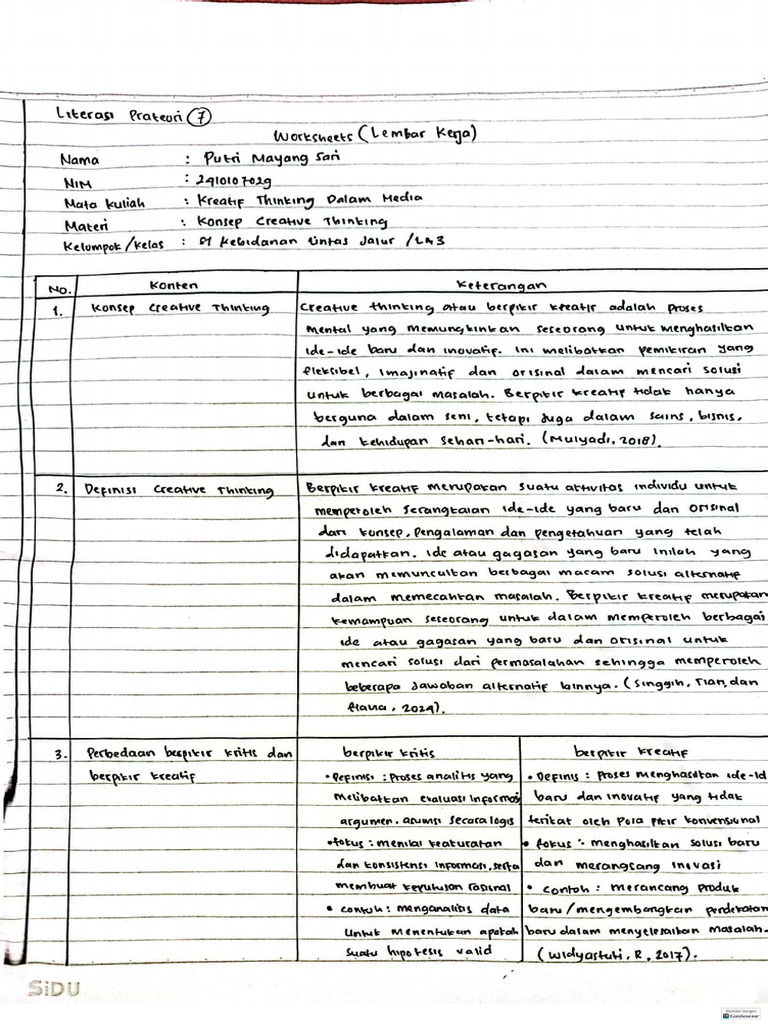 Literasi Prateori 7
Worksheets (Lembar Kerja)
Nama : Putri Mayang Sari
NIM : 2410107029
Mata Kuliah : Kreatif Thinking Dalam Media
Materi : Konsep Creative Thinking
Kelompok/Kelas : S1 Kebidanan Lintas Jalur /
No. Konten Keterangan
1. Konsep Creative Thinking
Creative thinking atau berpikir kreatif adalah proses
mental yang memungkinkan seseorang untuk menghasilkan
ide-ide baru dan inovatif. Ini melibatkan pemikiran yang
fleksibel, imajinatif dan orisinal dalam mencari solusi
untuk berbagai masalah. Berpikir kreatif tidak hanya
berguna dalam seni, tetapi juga dalam sains, bisnis,
dan kehidupan sehari-hari. (Mulyadi, 2018).
2. Definisi Creative Thinking
Berpikir kreatif merupakan suatu aktivitas individu untuk
memperoleh serangkaian ide-ide yang baru dan orisinal
dari konsep, pengalaman dan pengetahuan yang telah
didapatkan. Ide atau gagasan yang baru inilah yang
akan memunculkan berbagai macam solusi alternatif
dalam memecahkan masalah. Berpikir kreatif merupakan
kemampuan seseorang untuk dalam memperoleh berbagai
ide atau gagasan yang baru dan orisinal untuk
mencari solusi dari permasalahan sehingga memperoleh
beberapa jawaban alternatif lainnya. (Singgih, Tian, dan
2024).
3. Perbedaan berpikir kritis dan
berpikir kreatif
berpikir kritis
• Definisi : Proses analitis yang
melibatkan evaluasi informasi
argumen, asumsi secara logis
• fokus : menilai keakuratan
dan konsistensi informasi, serta
membuat keputusan rasional
• contoh : menganalisis data
untuk menentukan apakah
suatu hipotesis valid
berpikir kreatif
• Definis : Proses menghasilkan ide-id
baru dan inovatif yang tidak
terikat oleh pola pikir konvensional
• fokus : menghasilkan solusi baru
dan merangsang inovasi
• contoh : merancang produk
baru/mengembangkan pendekatan
baru dalam menyelesaikan masalah.
(Widyastuti, R, 2017).
SiDU
CamScanner